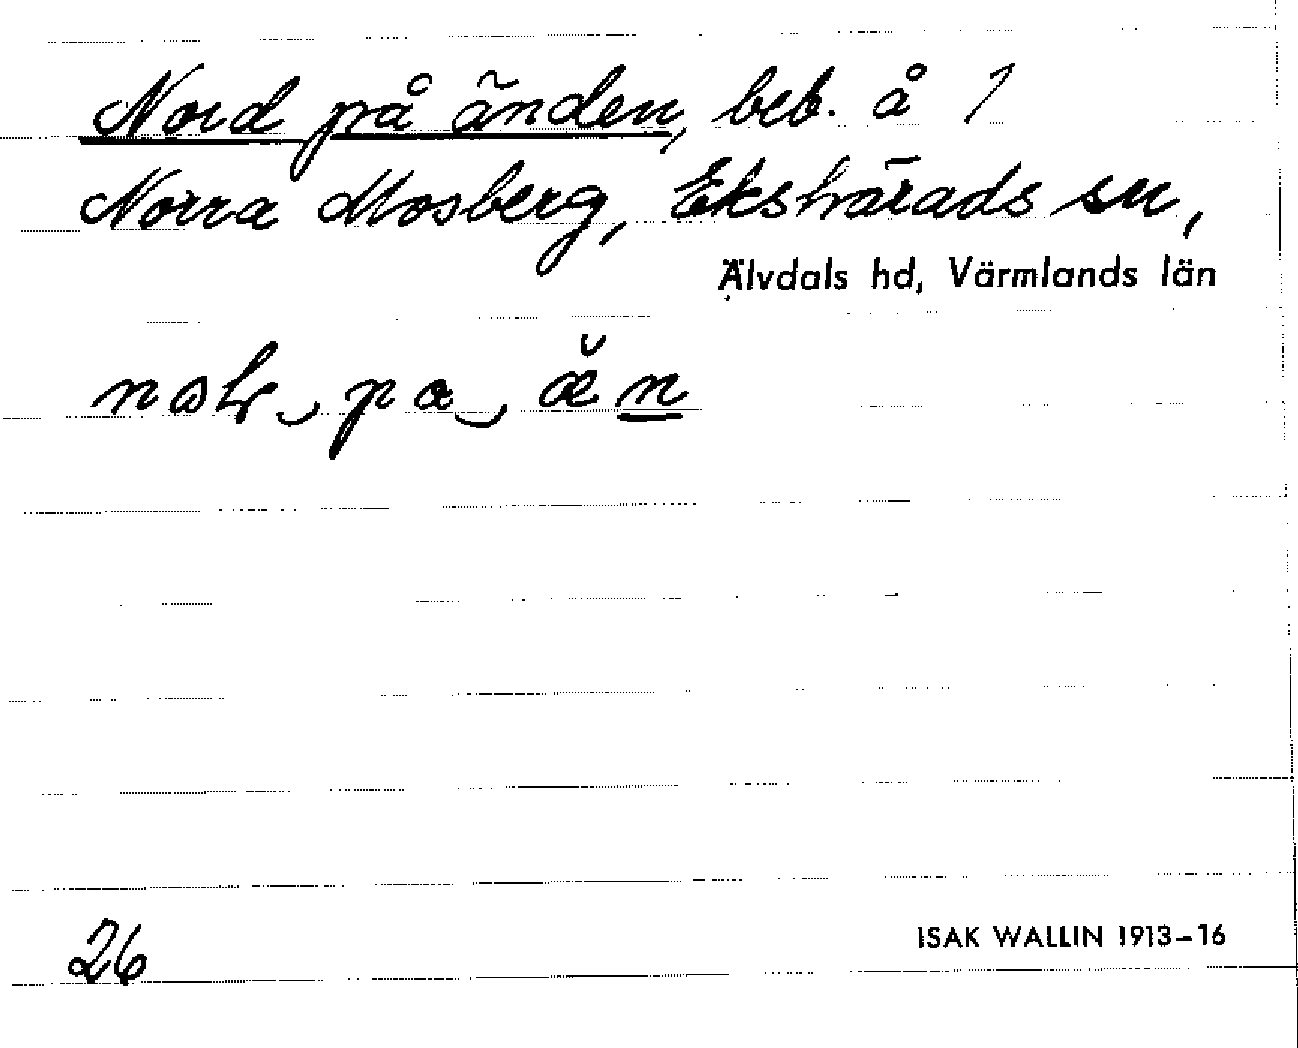 Nord på änden, beb. å 1
Norra Mosberg, Ekshärads sn,
Älvdals hd, Värmlands län
pa
26
ISAK WALLIN 1913–16